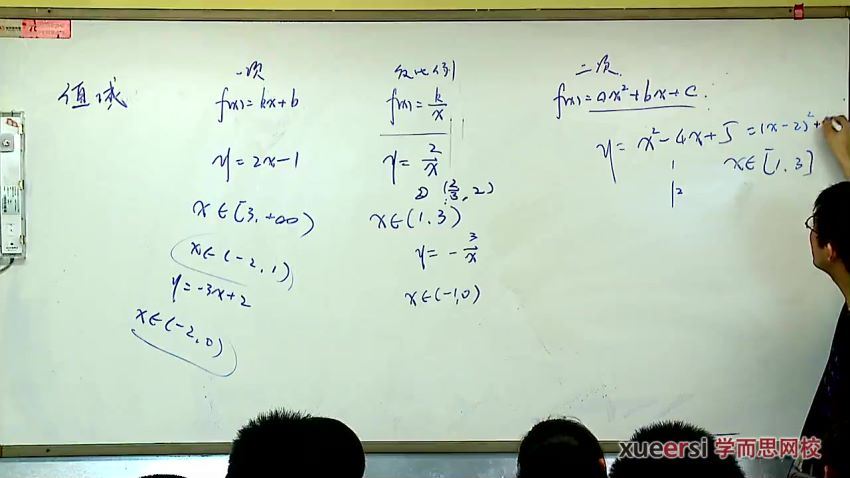 值域
一次
f(x)=kx+b
y=2x-1
x∈[3,+∞)
x∈(-2,1)
y=-3x+2
x∈(-2,0)
反比例
f(x)=k/x
y=2/x
(2/3,2)
x∈(1.3)
y=-3/x
x∈(-1,0)
二次
f(x)=ax²+bx+c.
y=x²-4x+5=(x-2)²+
x∈[1.3]
xueersi 学而思网校